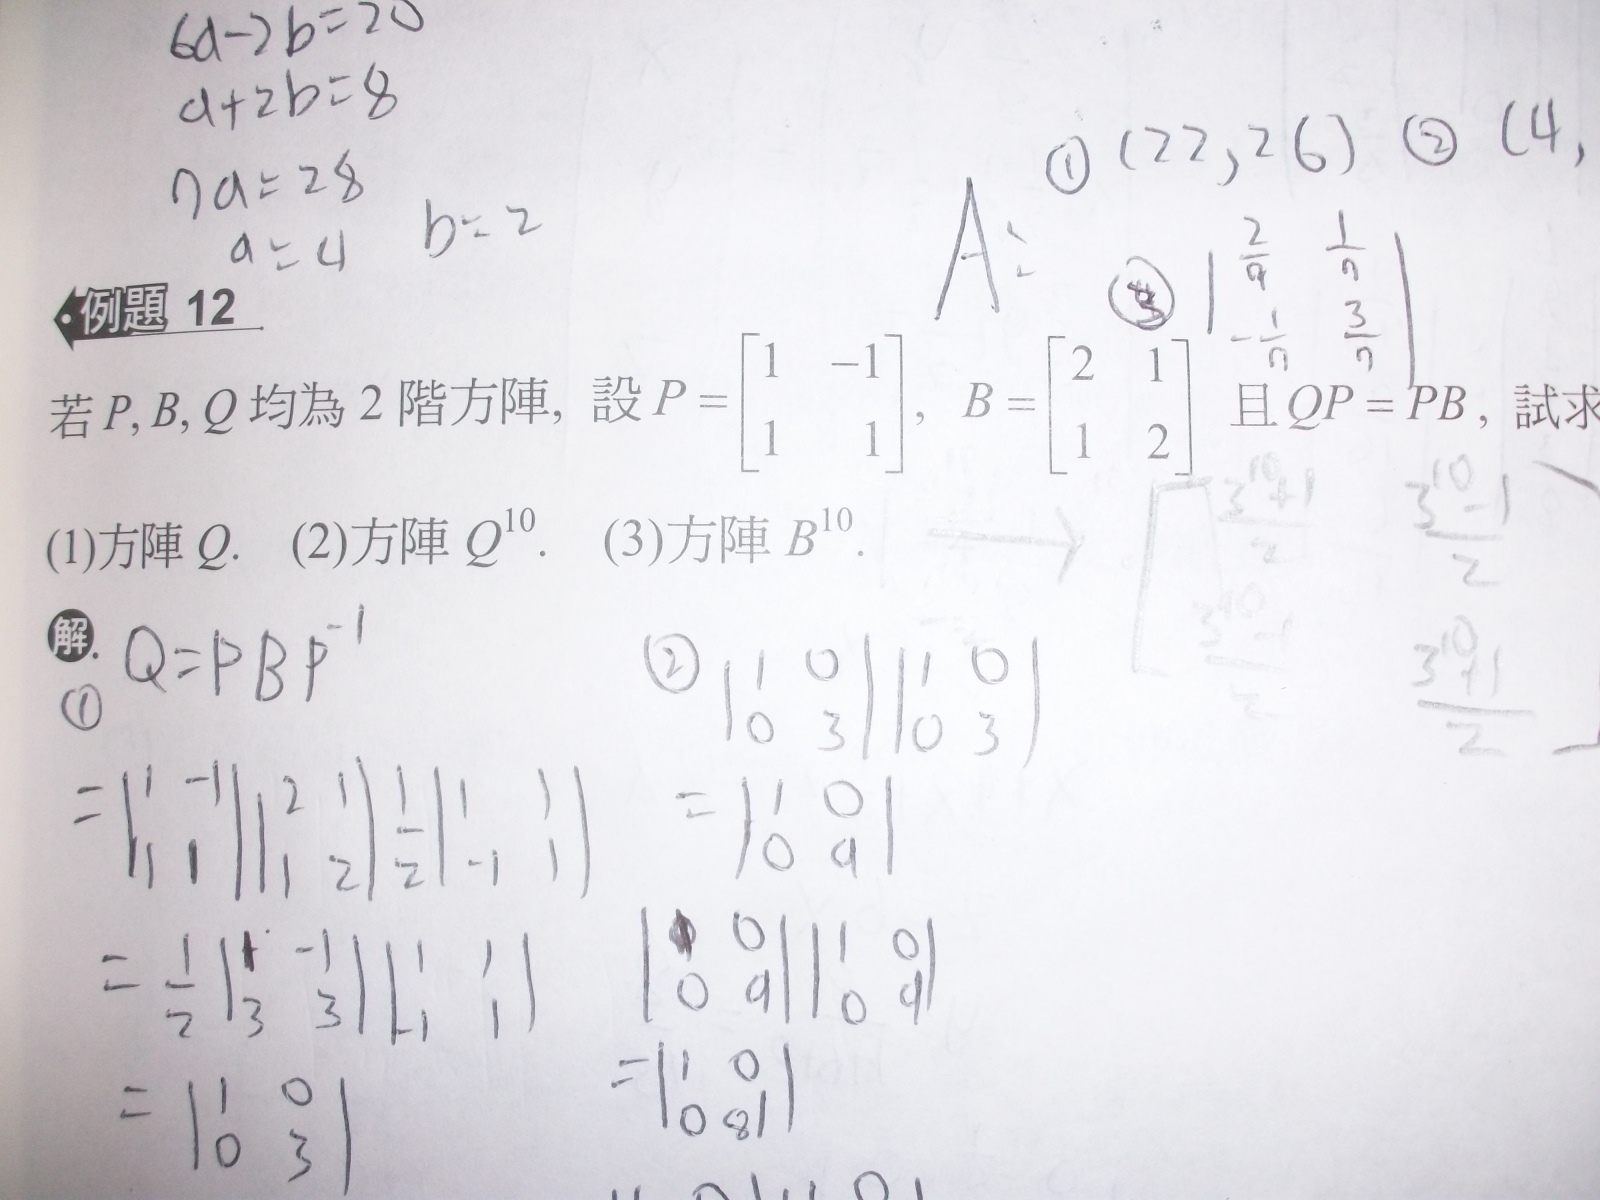 6a-2b=20
a+2b=8
7a=28
a=4 b=2
A: ① (22,26) ② (4,
③ | 2/7 1/7 |
| -1/7 3/7 |
例題 12
若 P, B, Q 均為 2 階方陣, 設 P = [ 1 -1 ; 1 1 ], B = [ 2 1 ; 1 2 ] 且 QP = PB, 試求
(1)方陣 Q. (2)方陣 Q^10. (3)方陣 B^10. → [ (3^10+1)/2 (3^10-1)/2 ; (3^10-1)/2 (3^10+1)/2 ]
解. ① Q=PBP^-1
= | 1 -1 ; 1 1 | | 2 1 ; 1 2 | 1/2 | 1 1 ; -1 1 |
= 1/2 | 1 -1 ; 3 3 | | 1 1 ; -1 1 |
= | 1 0 ; 0 3 |
② | 1 0 ; 0 3 | | 1 0 ; 0 3 |
= | 1 0 ; 0 9 |
| 1 0 ; 0 9 | | 1 0 ; 0 9 |
= | 1 0 ; 0 81 |